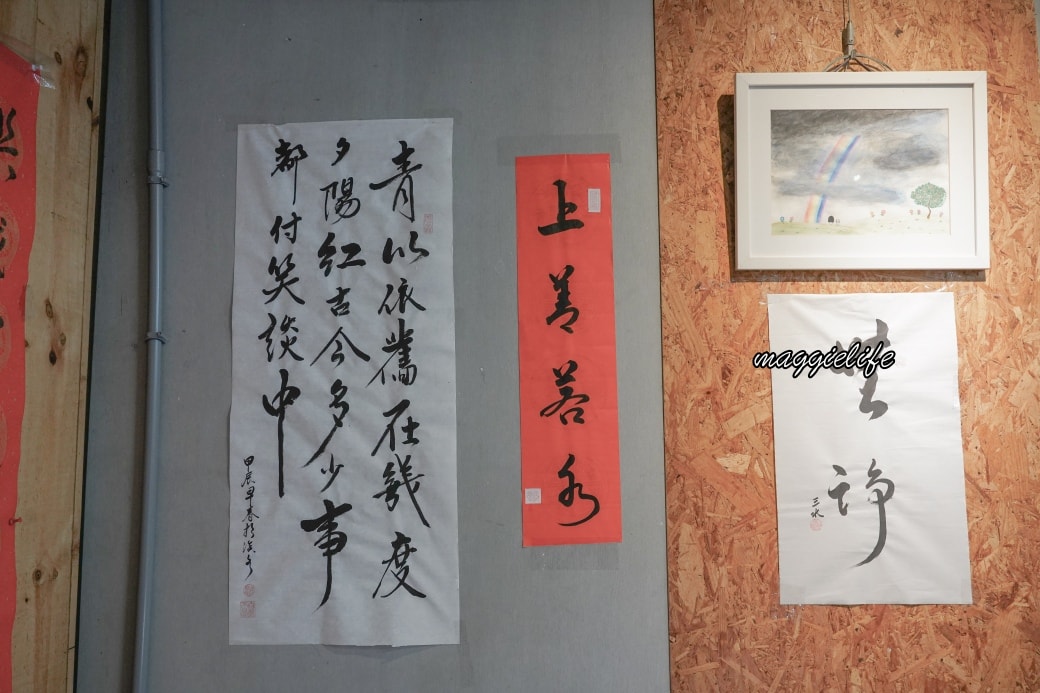 青山依舊在幾度
夕陽紅古今多少事
都付笑談中
甲辰早春於
上善若水
無諍
maggielife